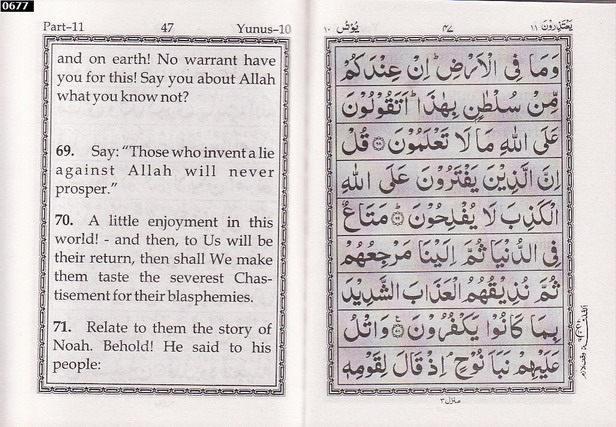 0677
Part-11 47 Yunus-10
and on earth! No warrant have
you for this! Say you about Allah
what you know not?
69. Say: “Those who invent a lie
against Allah will never
prosper.”
70. A little enjoyment in this
world! - and then, to Us will be
their return, then shall We make
them taste the severest Chas-
tisement for their blasphemies.
71. Relate to them the story of
Noah. Behold! He said to his
people:
یَعْتَذِرُوْنَ ۱۱ ۴۷ یُوْنُسْ ۱۰
وَمَا فِی الْاَرْضِ ؕ اِنْ عِنْدَكُمْ
مِّنْ سُلْطٰنٍۭ بِهٰذَا ؕ اَتَقُوْلُوْنَ
عَلَی اللّٰهِ مَا لَا تَعْلَمُوْنَ ۝۶۸ قُلْ
اِنَّ الَّذِیْنَ یَفْتَرُوْنَ عَلَی اللّٰهِ
الْكَذِبَ لَا یُفْلِحُوْنَ ۝۶۹ مَتَاعٌ
فِی الدُّنْیَا ثُمَّ اِلَیْنَا مَرْجِعُهُمْ
ثُمَّ نُذِیْقُهُمُ الْعَذَابَ الشَّدِیْدَ
بِمَا كَانُوْا یَكْفُرُوْنَ ۝۷۰ وَاتْلُ
عَلَیْهِمْ نَبَاَ نُوْحٍ ۘ اِذْ قَالَ لِقَوْمِهٖ
منزل ۳